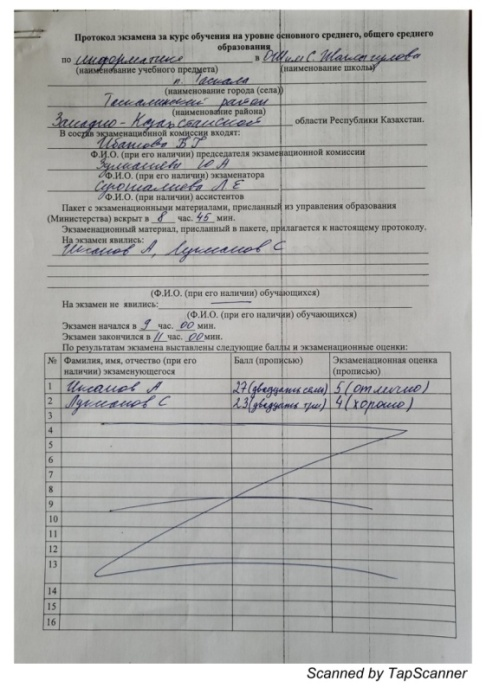 Протокол экзамена за курс обучения на уровне основного среднего, общего среднего
образования
по информатике в ОШ им С. Жаксыгулова
(наименование учебного предмета) (наименование школы)
п. Тасқала
(наименование города (села))
Таскалинский район
(наименование района)
Западно - Казахстанской области Республики Казахстан.
В состав экзаменационной комиссии входят:
Б Г
Ф.И.О. (при его наличии) председателя экзаменационной комиссии
Ю А
Ф.И.О. (при его наличии) экзаменатора
Л Е
Ф.И.О. (при его наличии) ассистентов
Пакет с экзаменационными материалами, присланный из управления образования
(Министерства) вскрыт в 8 час. 45 мин.
Экзаменационный материал, присланный в пакете, прилагается к настоящему протоколу.
На экзамен явились:
Иксанов А, Лукманов С
(Ф.И.О. (при его наличии) обучающихся)
На экзамен не явились:
(Ф.И.О. (при его наличии) обучающихся)
Экзамен начался в 9 час. 00 мин.
Экзамен закончился в 11 час. 00 мин.
По результатам экзамена выставлены следующие баллы и экзаменационные оценки:
№ Фамилия, имя, отчество (при его наличии) экзаменующегося Балл (прописью) Экзаменационная оценка (прописью)
1 Иксанов А 27 (двадцать семь) 5 (отлично)
2 Лукманов С 23 (двадцать три) 4 (хорошо)
3
4
5
6
7
8
9
10
11
12
13
14
15
16
Scanned by TapScanner